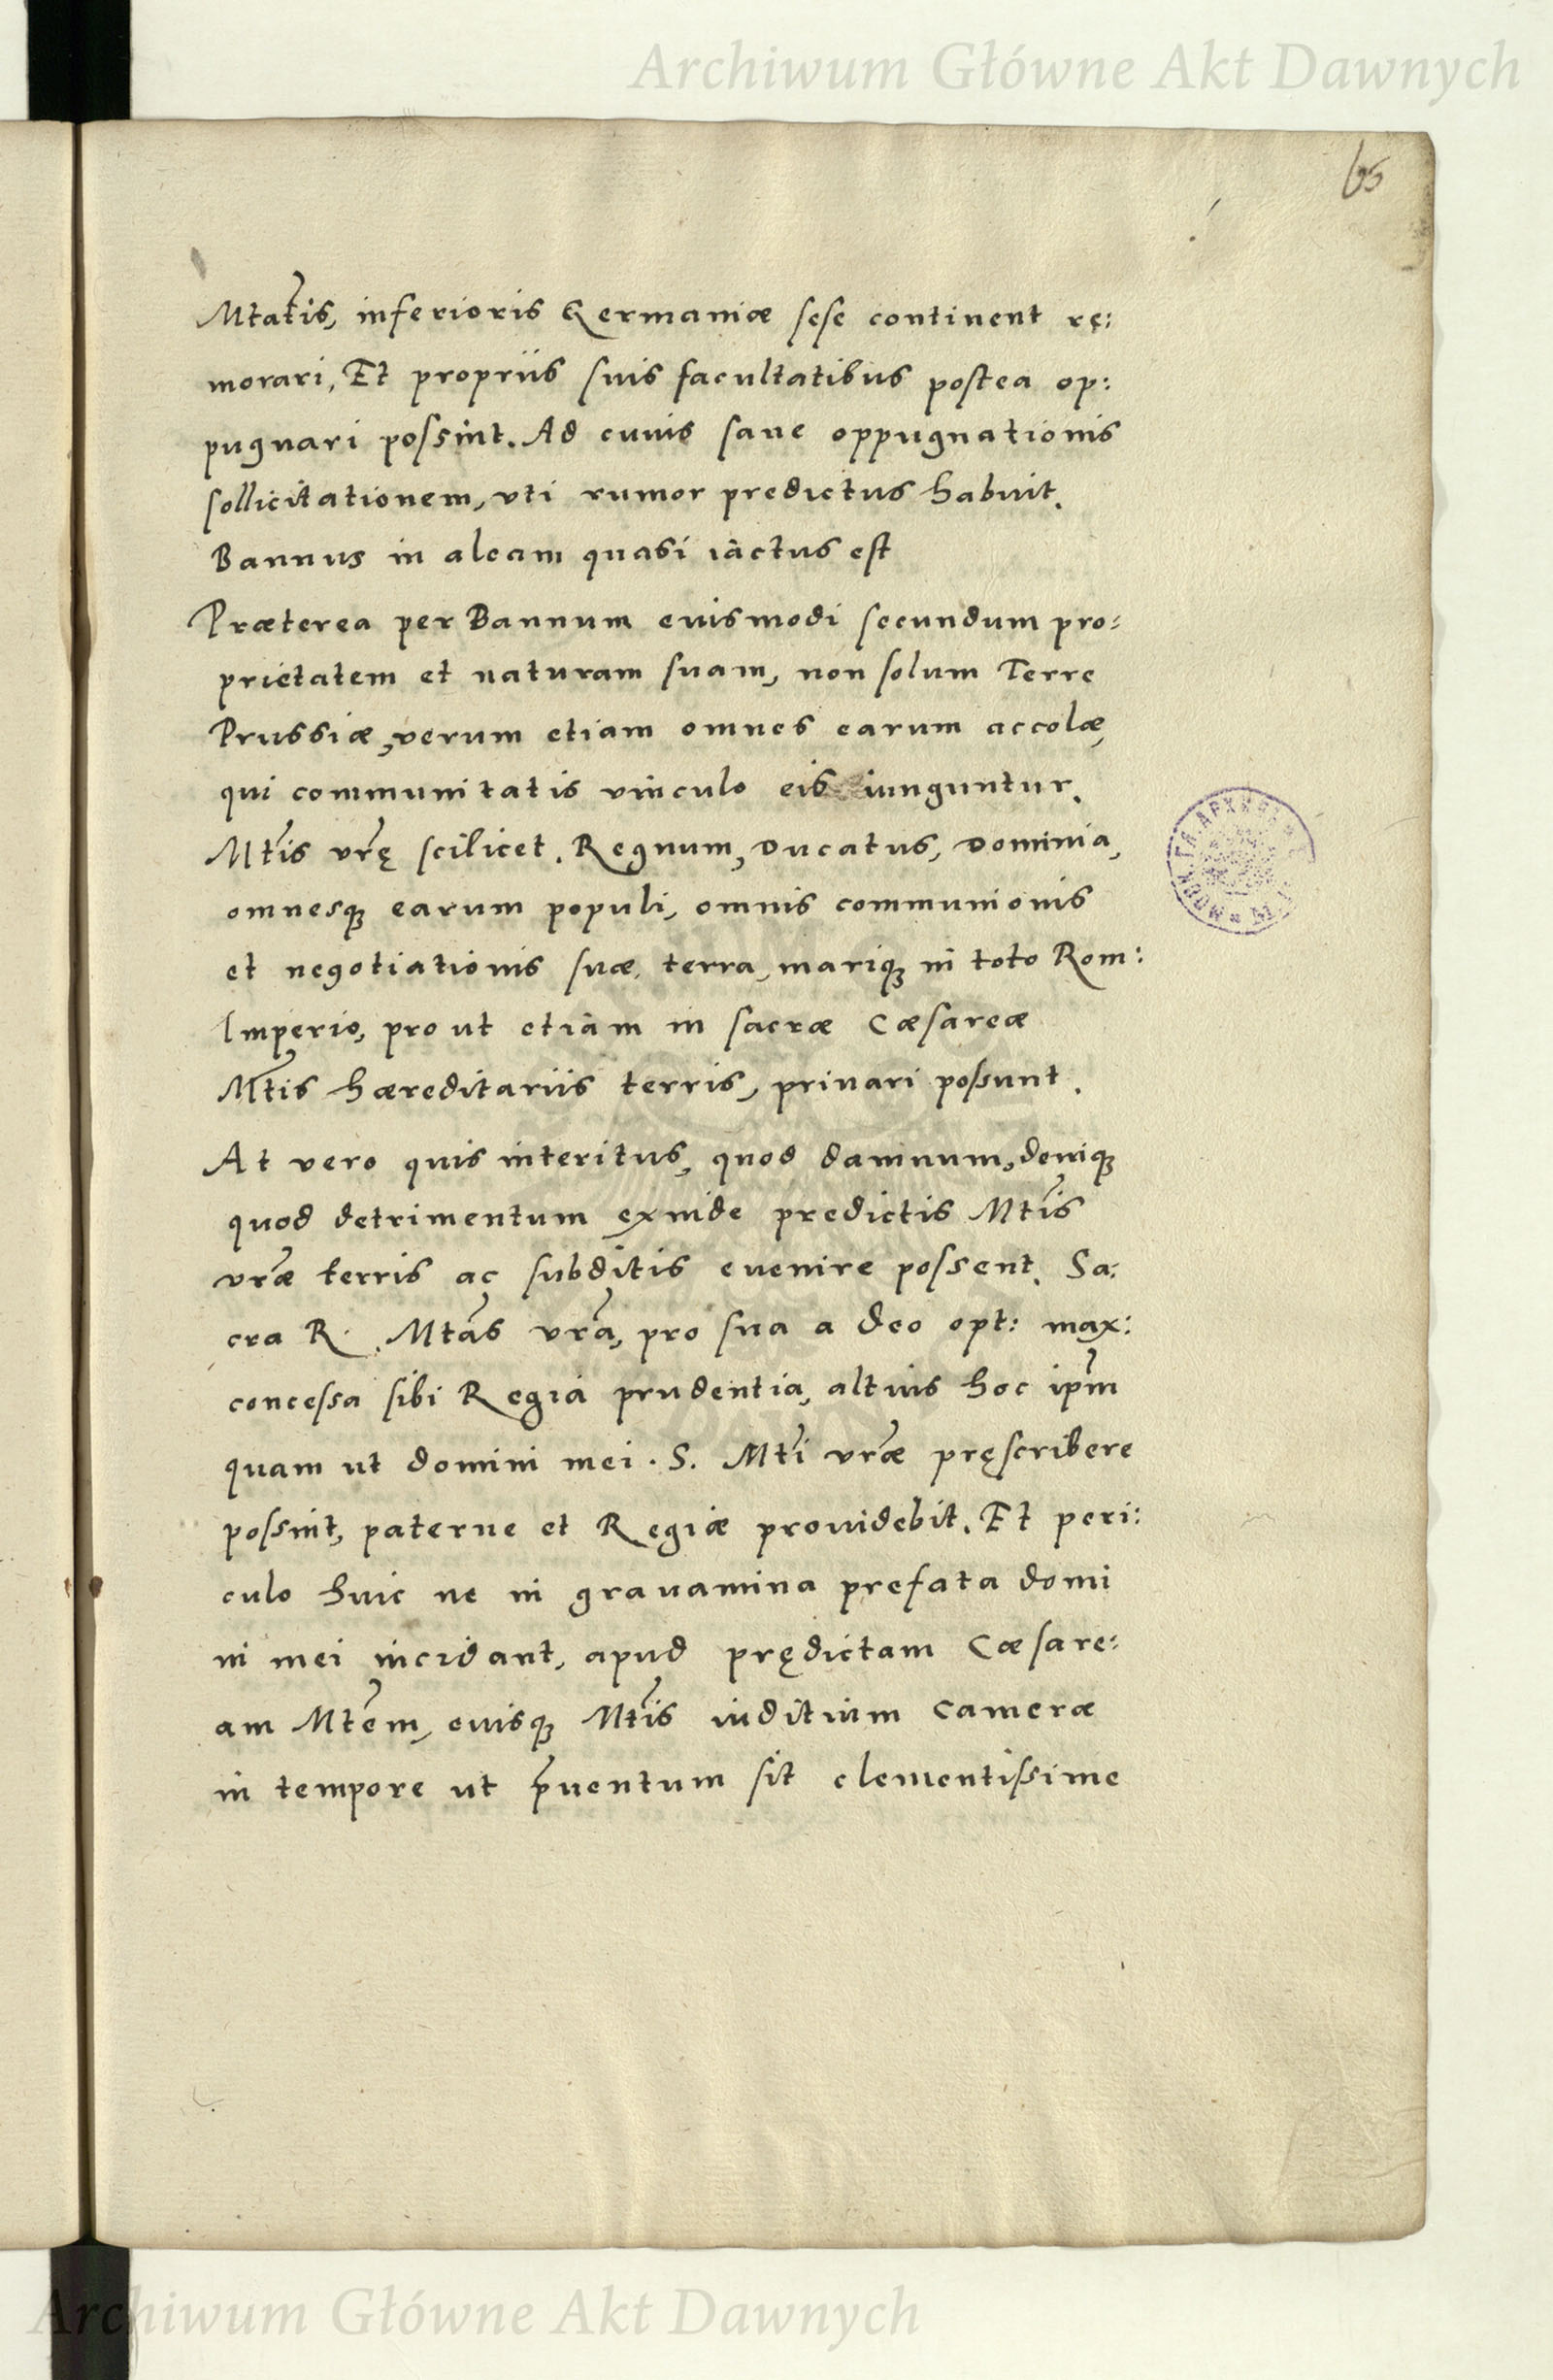 Archiwum Główne Akt Dawnych
65
Mtatis, inferioris Germaniæ sese continent rę:
morari, Et propriis suis facultatibus postea op:
pugnari possint. Ad cuius sane oppugnationis
sollicitationem, vti rumor predictus habuit.
Bannus in aleam quasi iactus est
Præterea per Bannum euismodi secundum pro:
prietatem et naturam suam, non solum Terre
Prussiæ, verum etiam omnes earum accolæ,
qui communitatis vinculo eis iunguntur.
Mtis vrę scilicet. Regnum, Ducatus, Dominia,
omnesq earum populi, omnis communionis
et negotiationis suæ, terra, mariq in toto Rom:
Imperio, pro ut etiam in sacræ Cæsareæ
Mtis hæreditariis terris, priuari possunt.
At vero quis interitus, quod damnum, deniq
quod detrimentum exinde predictis Mtis
vræ terris ac subditis euenire possent. Sa:
cra R. Mtas vra, pro sua a deo opt: max:
concessa sibi Regia prudentia, altius hoc ipm
quam ut domini mei. S. Mti vræ pręscribere
possint, paterne et Regiæ prouidebit. Et peri:
culo huic ne in grauamina prefata domi
ni mei incidant, apud prędictam Cæsare:
am Mtem, euisq Mtis iuditium Cameræ
in tempore ut pruentum sit clementissime
Archiwum Główne Akt Dawnych